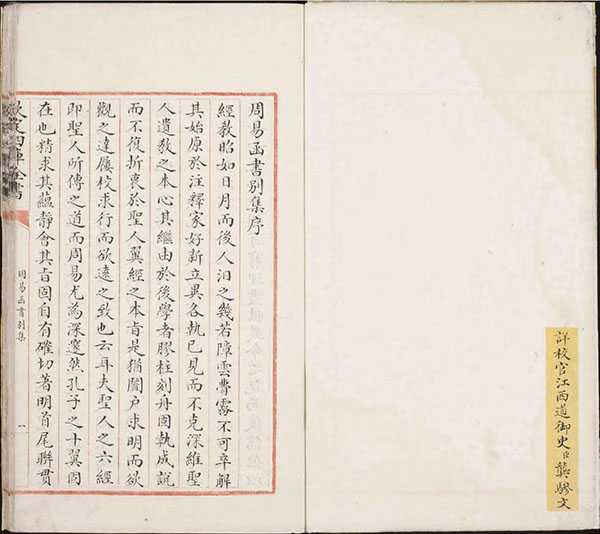 詳校官江西道御史臣龔驂文
周易函書別集序
經教昭如日月而後人汨之幾若障雲瞢霧不可卒解
其始原於注釋家好新立異各執已見而不克深維聖
人遺教之本心其繼由於後學者膠柱刻舟固執成說
而不復折衷於聖人翼經之本㫖是猶闔户求明而欲
觀之達屨校求行而欲遠之致也云耳夫聖人之六經
即聖人所傳之道而周易尤為深邃然孔子之十翼固
在也精求其蘊靜會其㫖固自有確切著明首尾聯貫
欽定四庫全書
周易函書別集
一